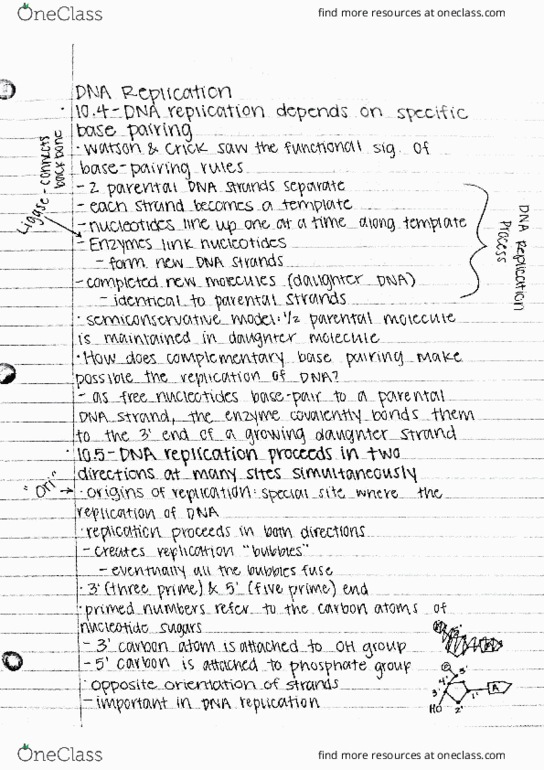 OneClass
find more resources at oneclass.com
DNA Replication
· 10.4 - DNA replication depends on specific
base pairing
· Watson & Crick saw the functional sig. of
base-pairing rules
- 2 parental DNA strands separate
- each strand becomes a template
- nucleotides line up one at a time along template
- Enzymes link nucleotides
- form new DNA strands
- completed new molecules (daughter DNA)
- identical to parental strands
Ligase - connects
backbone
DNA Replication
Process
· semiconservative model: 1/2 parental molecule
is maintained in daughter molecule
· How does complementary base pairing make
possible the replication of DNA?
- as free nucleotides base-pair to a parental
DNA strand, the enzyme covalently bonds them
to the 3' end of a growing daughter strand
· 10.5 - DNA replication proceeds in two
directions at many sites simultaneously
"ori" → · origins of replication: special site where the
replication of DNA
· replication proceeds in both directions
- creates replication "bubbles"
- eventually all the bubbles fuse
· 3' (three prime) & 5' (five prime) end
· primed numbers refer to the carbon atoms of
nucleotide sugars
- 3' carbon atom is attached to OH group
- 5' carbon is attached to phosphate group
· opposite orientation of strands
- important in DNA replication
P
5'
4'
3'
2'
1'
A
HO
OneClass
find more resources at oneclass.com